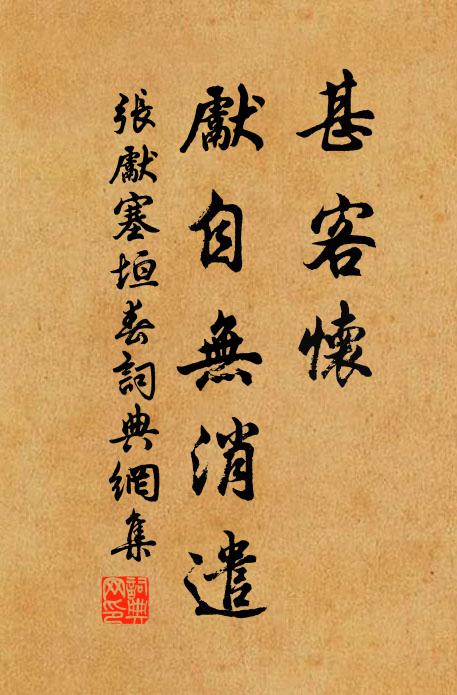 甚客懷
獻自無消遣
張獻塞垣春詞典網集
詞典网印